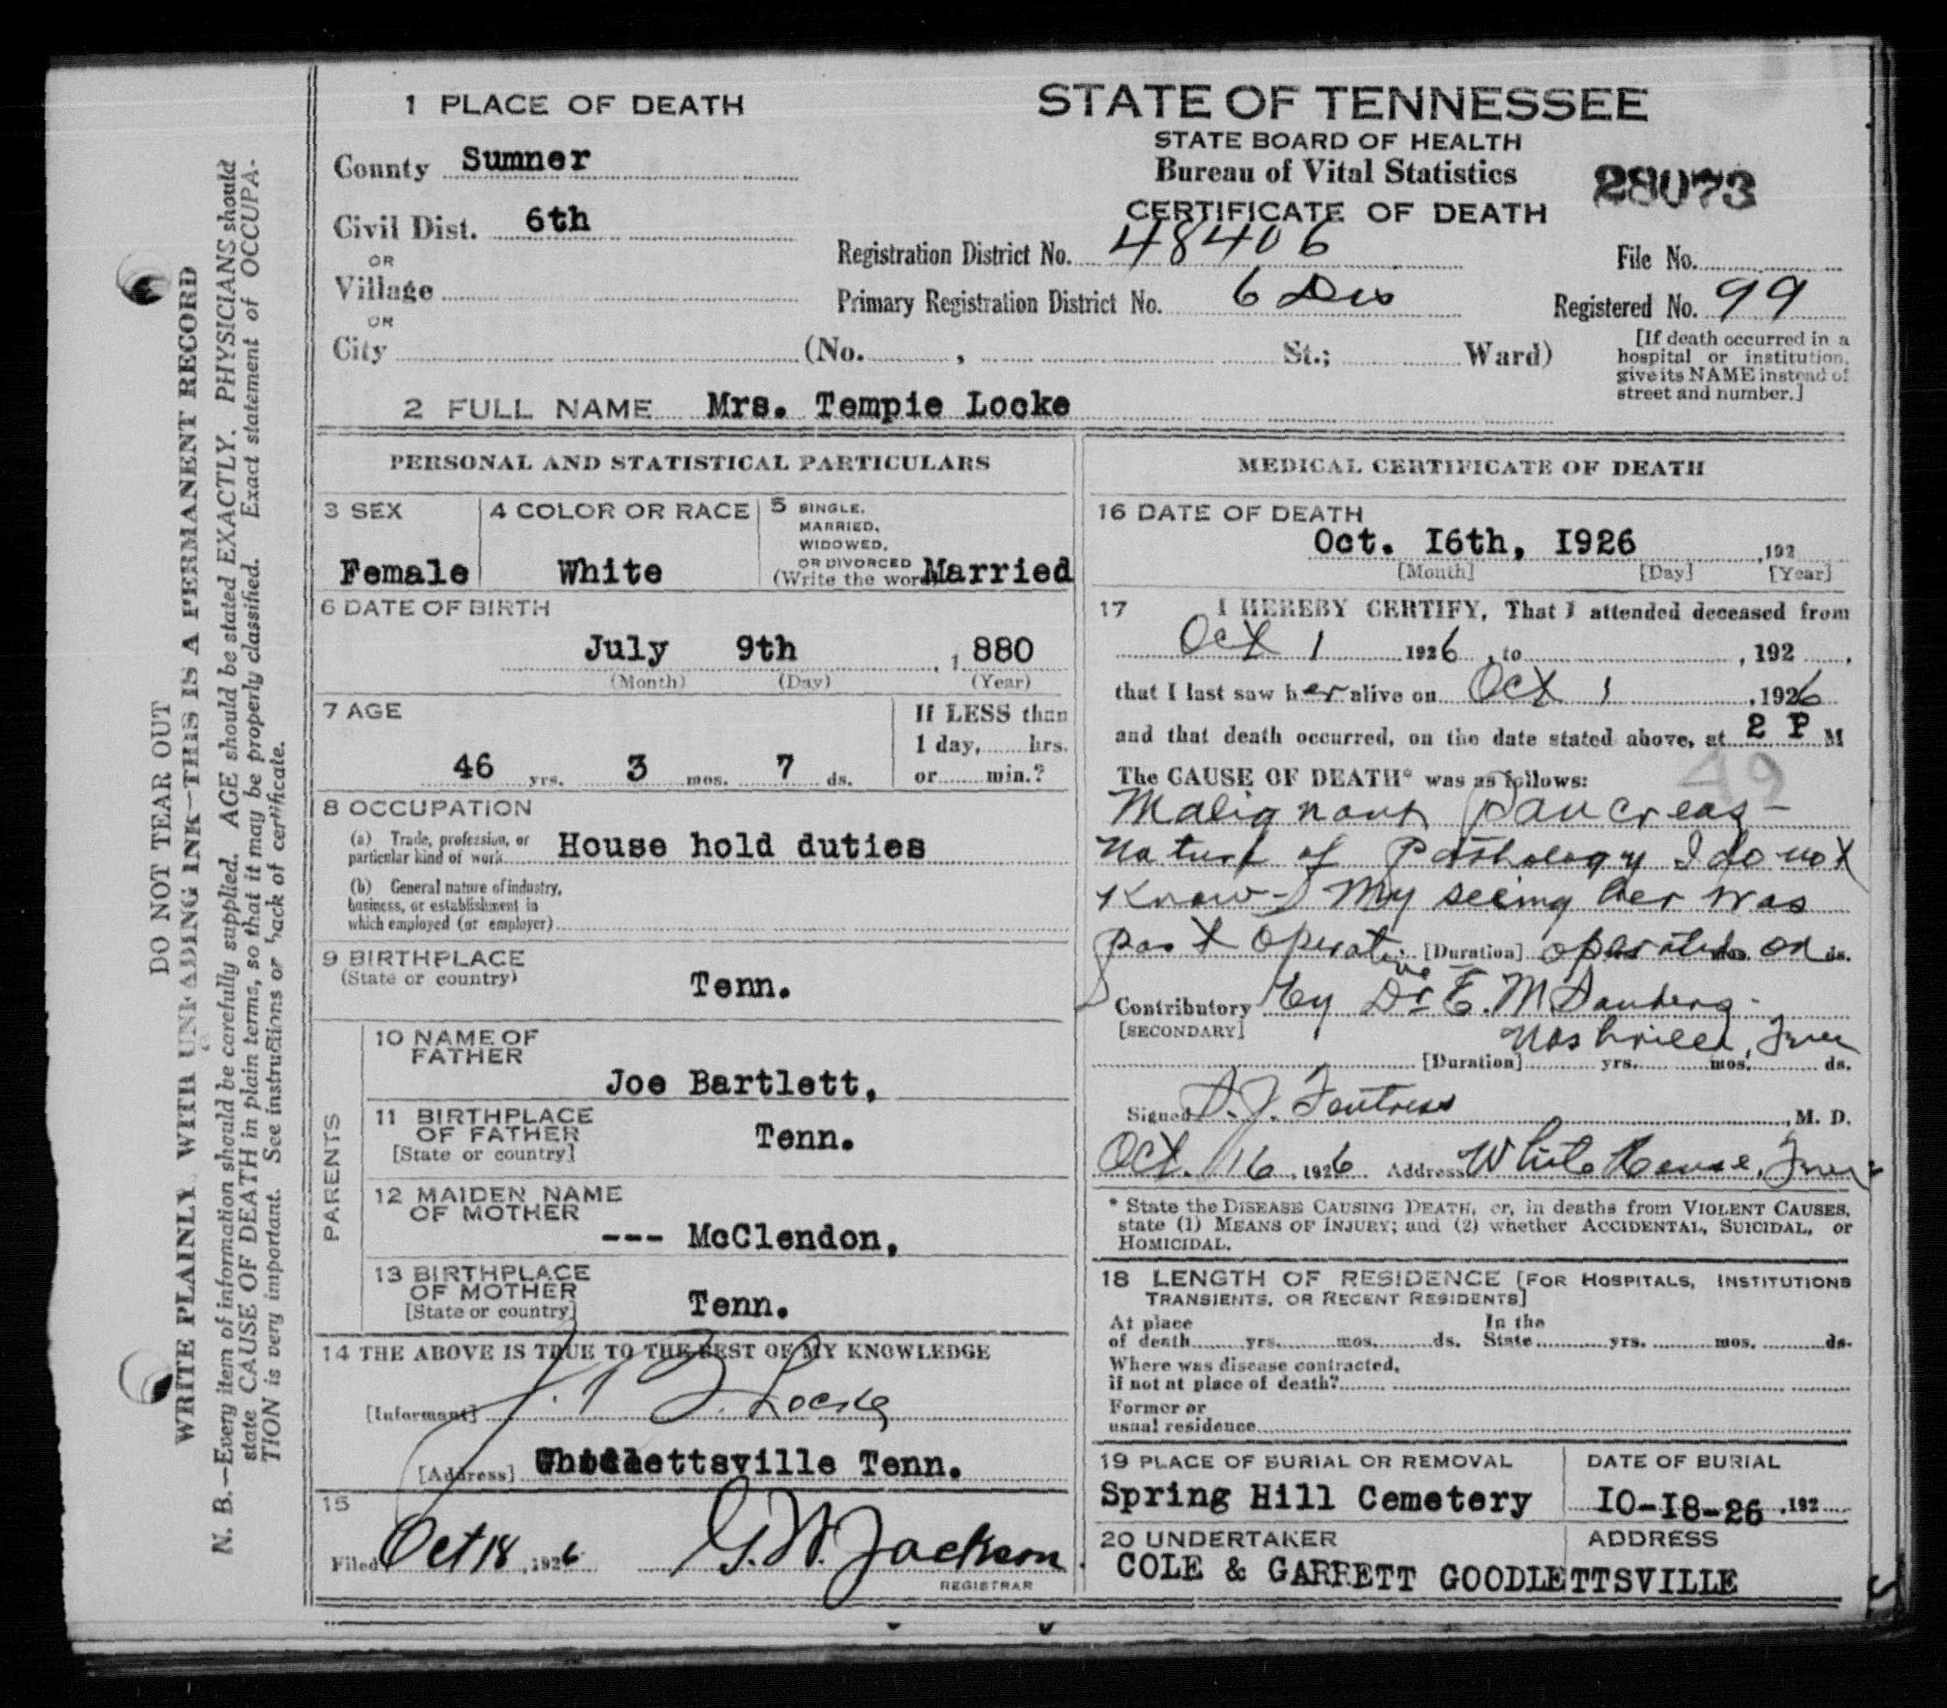 DO NOT TEAR OUT
WRITE PLAINLY, WITH UNFADING INK—THIS IS A PERMANENT RECORD
N. B.—Every item of information should be carefully supplied. AGE should be stated EXACTLY. PHYSICIANS should
state CAUSE OF DEATH in plain terms, so that it may be properly classified. Exact statement of OCCUPA-
TION is very important. See instructions on back of certificate.
1 PLACE OF DEATH
County Sumner
Civil Dist. 6th
OR
Village
OR
City (No. , St.; Ward)
STATE OF TENNESSEE
STATE BOARD OF HEALTH
Bureau of Vital Statistics
CERTIFICATE OF DEATH
28073
Registration District No. 48406
File No.
Primary Registration District No. 6 Dis
Registered No. 99
[If death occurred in a
hospital or institution,
give its NAME instead of
street and number.]
2 FULL NAME Mrs. Tempie Locke
PERSONAL AND STATISTICAL PARTICULARS
3 SEX
Female
4 COLOR OR RACE
White
5 SINGLE,
MARRIED,
WIDOWED,
OR DIVORCED
(Write the word) Married
6 DATE OF BIRTH
July 9th , 1 880
(Month) (Day) (Year)
7 AGE
46 yrs. 3 mos. 7 ds.
If LESS than
1 day, hrs.
or min.?
8 OCCUPATION
(a) Trade, profession, or
particular kind of work House hold duties
(b) General nature of industry,
business, or establishment in
which employed (or employer)
9 BIRTHPLACE
(State or country)
Tenn.
PARENTS
10 NAME OF
FATHER
Joe Bartlett,
11 BIRTHPLACE
OF FATHER
[State or country]
Tenn.
12 MAIDEN NAME
OF MOTHER
--- McClendon,
13 BIRTHPLACE
OF MOTHER
[State or country]
Tenn.
14 THE ABOVE IS TRUE TO THE BEST OF MY KNOWLEDGE
[Informant] Locke
[Address] Goodlettsville Tenn.
15
Filed Oct 18, 1926 G. W. Jackson
REGISTRAR
MEDICAL CERTIFICATE OF DEATH
16 DATE OF DEATH
Oct. I6th, I926 , 192
[Month] [Day] [Year]
17 I HEREBY CERTIFY, That I attended deceased from
Oct 1 1926, to , 192 ,
that I last saw her alive on Oct 1 , 1926
and that death occurred, on the date stated above, at 2 P M
The CAUSE OF DEATH* was as follows:
49
Malignant Pancreas—
Nature of Pathology I do not
Know— My seeing her was
post operative [Duration] operated on ds.
Contributory by Dr E. M Sanders
[SECONDARY]
Nashville, Tenn
[Duration] yrs. mos. ds.
Signed Fentress, M. D.
Oct. 16, 1926 Address White House, Tenn
* State the DISEASE CAUSING DEATH, or, in deaths from VIOLENT CAUSES,
state (1) MEANS OF INJURY; and (2) whether ACCIDENTAL, SUICIDAL, or
HOMICIDAL.
18 LENGTH OF RESIDENCE [FOR HOSPITALS, INSTITUTIONS
TRANSIENTS, OR RECENT RESIDENTS]
At place In the
of death yrs. mos. ds. State yrs. mos. ds.
Where was disease contracted,
if not at place of death?
Former or
usual residence
19 PLACE OF BURIAL OR REMOVAL
Spring Hill Cemetery
DATE OF BURIAL
IO-I8-26 , 192
20 UNDERTAKER
ADDRESS
COLE & GARRETT GOODLETTSVILLE